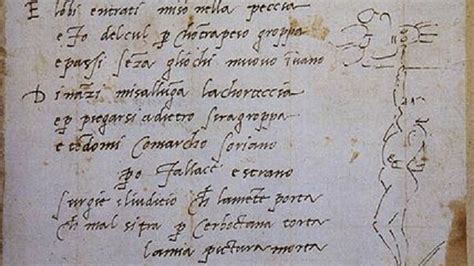 E lobi entrati miso nella peccia
e fo delcul p chotrapeso groppa
e passi seza gliochi muovo ivano
Dinazi misalluga lachorteccia
e p piegarsi adietro siragroppa
e tedomi comarcho soriano
po fallace e strano
surgie iliudicio ch lamete porta
ch mal si tra p cerboctana torta
lamia pictura morta